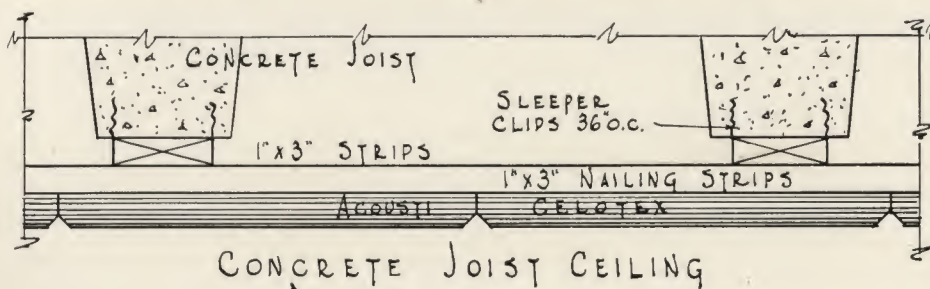 CONCRETE JOIST
SLEEPER
CLIPS 36" O.C.
1" X 3" STRIPS
1" X 3" NAILING STRIPS
ACOUSTI CELOTEX
CONCRETE JOIST CEILING